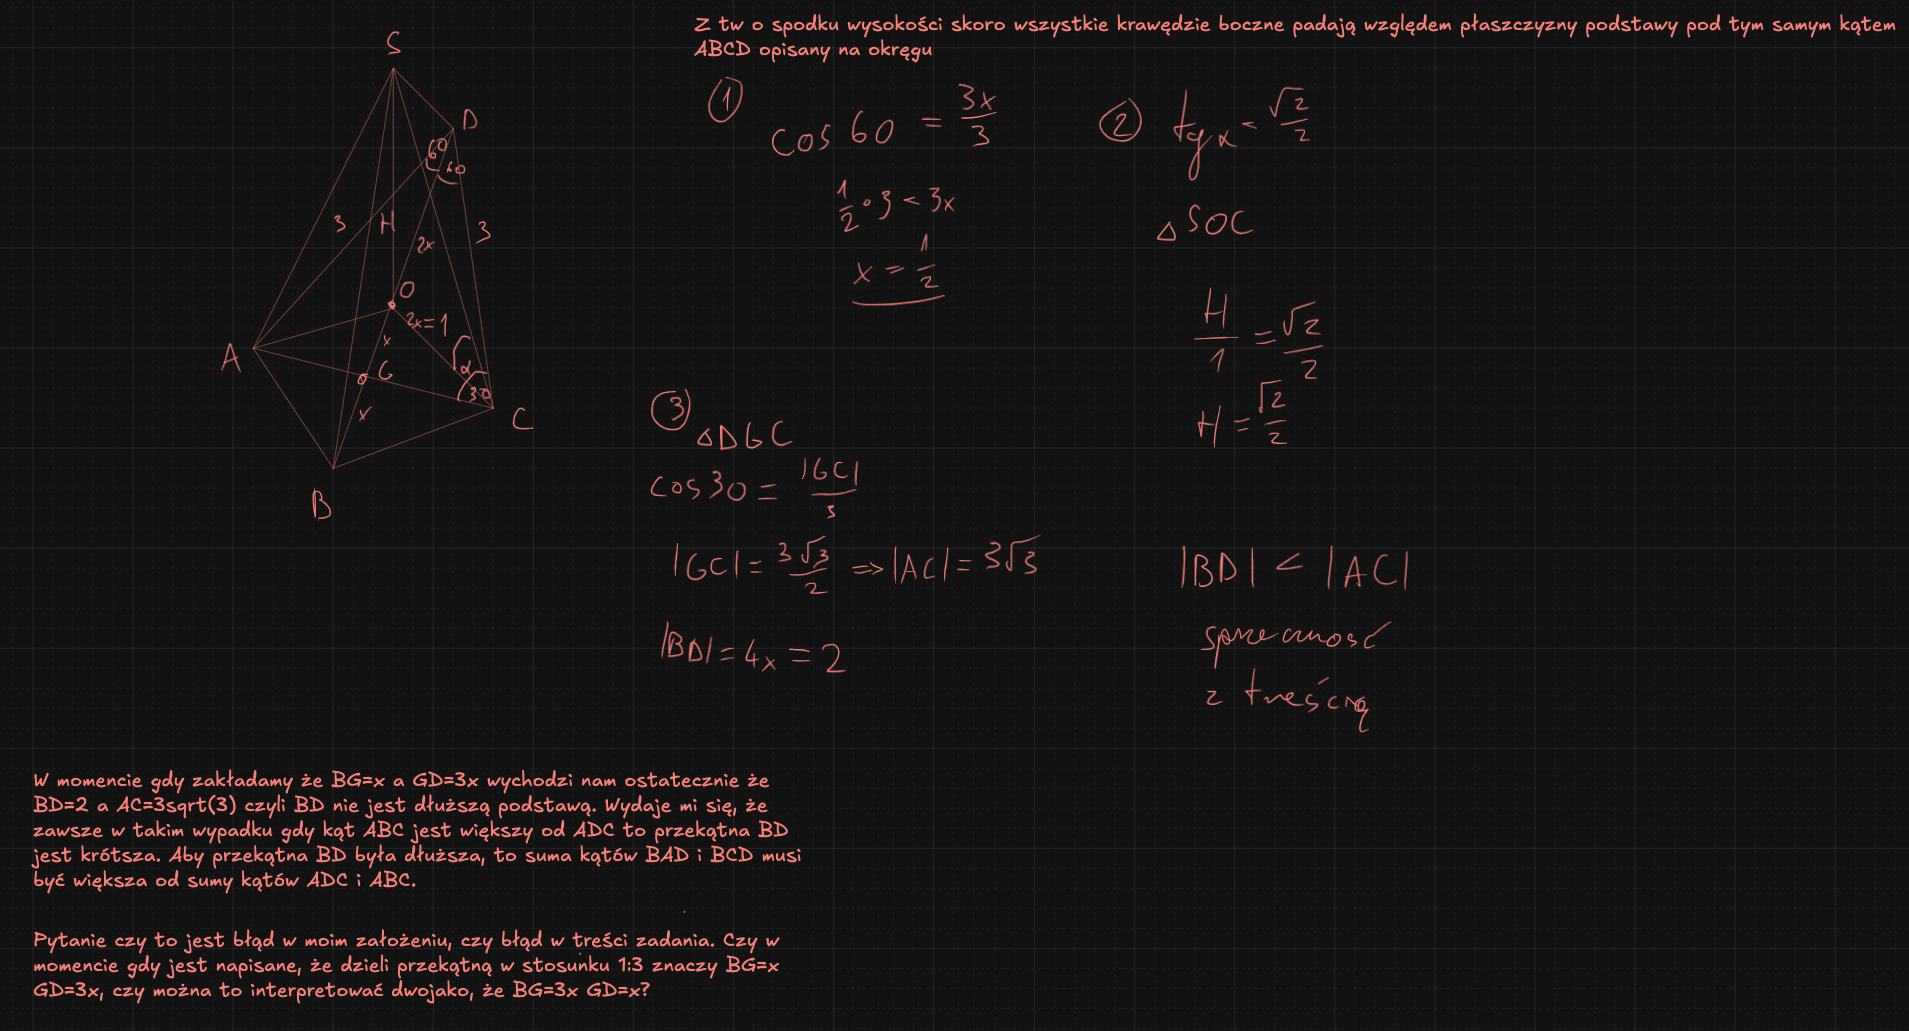 Z tw o spodku wysokości skoro wszystkie krawędzie boczne padają względem płaszczyzny podstawy pod tym samym kątem
ABCD opisany na okręgu
S
D
60
60
3
H
3
2x
O
2x=1
x
A
G
α
30
x
C
B
①
cos 60 = 3x/3
1/2 • 3 = 3x
x = 1/2
②
tg α = √2/2
△ SOC
H/1 = √2/2
H = √2/2
③
△DGC
cos30 = |GC|/3
|GC| = 3√3/2 => |AC| = 3√3
|BD| = 4x = 2
|BD| < |AC|
sprzeczność
z treścią
W momencie gdy zakładamy że BG=x a GD=3x wychodzi nam ostatecznie że
BD=2 a AC=3sqrt(3) czyli BD nie jest dłuższą podstawą. Wydaje mi się, że
zawsze w takim wypadku gdy kąt ABC jest większy od ADC to przekątna BD
jest krótsza. Aby przekątna BD była dłuższa, to suma kątów BAD i BCD musi
być większa od sumy kątów ADC i ABC.
Pytanie czy to jest błąd w moim założeniu, czy błąd w treści zadania. Czy w
momencie gdy jest napisane, że dzieli przekątną w stosunku 1:3 znaczy BG=x
GD=3x, czy można to interpretować dwojako, że BG=3x GD=x?